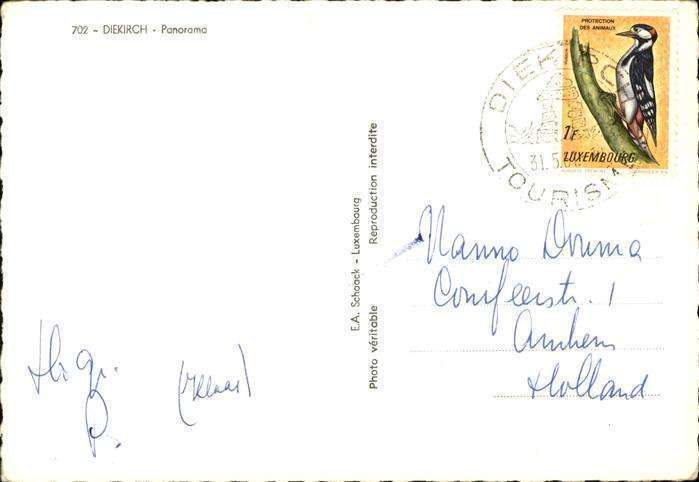 702 - DIEKIRCH - Panorama
PROTECTION
DES ANIMAUX
1F
LUXEMBOURG
DIEK
31.5.6
TOURISM
E.A. Schaack - Luxembourg
Photo véritable Reproduction interdite
Nanno Douma
Comfeerstr. 1
Arnhem
Holland
(Klaas)